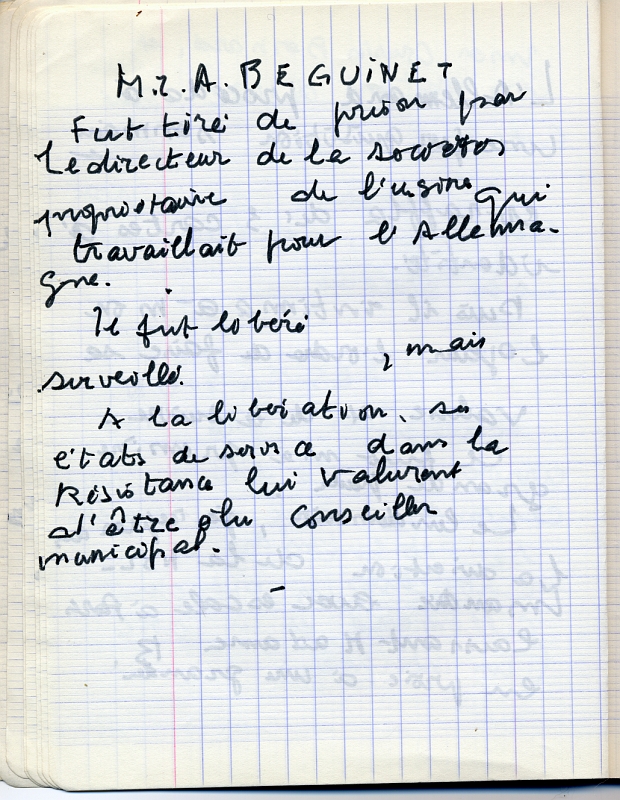 M. A. BEGUINET
Fut tiré de prison par
le directeur de la société
propriétaire de l'usine qui
travaillait pour l'Allema-
gne.
Il fut libéré
, mais
surveillé.
A la libération, ses
états de service dans la
Résistance lui valurent
d'être élu Conseiller
municipal.
-